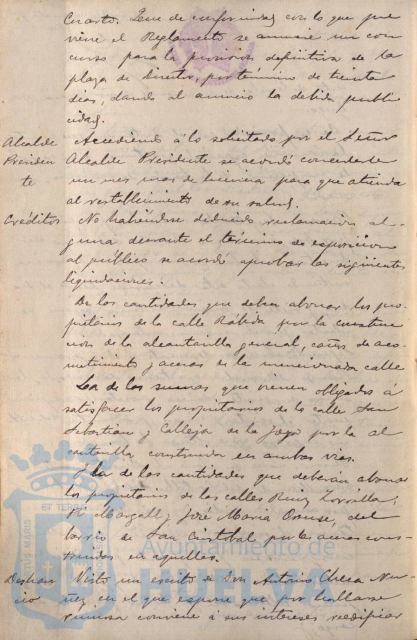 Cuarto. Que de conformidad con lo que pre
viene el Reglamento se anuncie un con
curso para la provision definitiva de la
plaza de Director, por término de treinta
dias, dando al anuncio la debida publi
cidad.
Alcalde Presiden te
Accediendo á lo solicitado por el Señor
Alcalde Presidente se acordó concederle
un mes mas de licencia para que atienda
al restablecimiento de su salud.
Créditos
No habiéndose deducido reclamacion al-
guna durante el término de exposicion
al público se acordó aprobar las siguientes
liquidaciones.
De las cantidades que deben abonar los pro
pietarios de la calle Rábida por la construc
cion de la alcantarilla general, caños de aco-
metimiento y aceras en la mencionada calle
La de las sumas que vienen obligados á
satisfacer los propietarios de la calle San
Sebastian y Calleja de la por la al
cantarilla construida en ambas vias.
Y la de las cantidades que deberán abonar
los propietarios de las calles Ruiz Zorrilla,
Pí Margall y José Maria del
barrio de San Cristobal por las aceras cons-
truidas en aquellas.
Visto un escrito de Don Antonio Checa Nu-
ñez en el que expone que por hallarse
ruinosa conviene á sus intereses reedificar
Ayuntamiento de
HUELVA